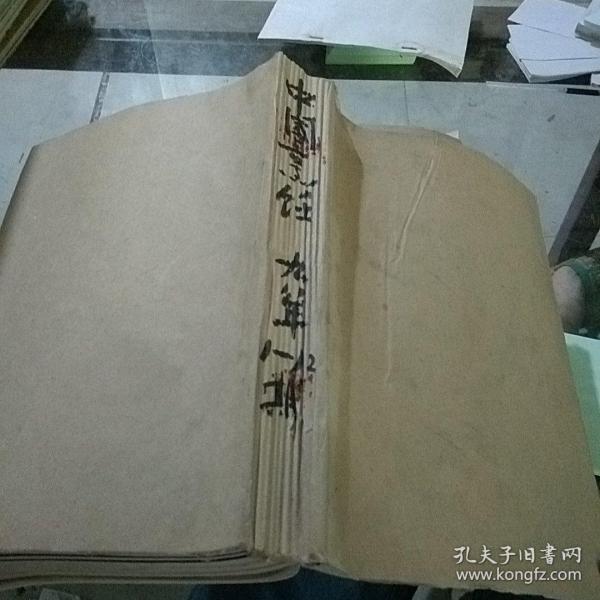 中国烹饪
九 年 1-12
期
孔夫子旧书网
www.kongfz.com